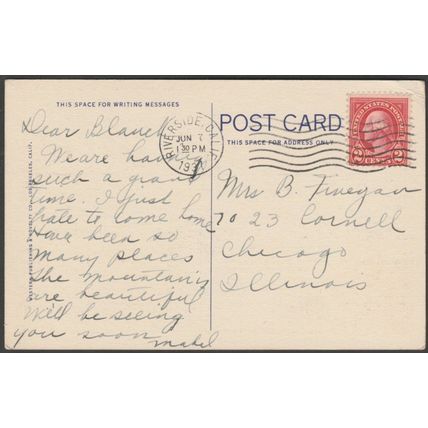 THIS SPACE FOR WRITING MESSAGES
Dear Blanch
We are having
such a grand
time. I just
hate to come home
Have been so
many places
The mountains
are beautiful
Will be seeing
you soon
Mabel
POST CARD
THIS SPACE FOR ADDRESS ONLY
RIVERSIDE, CALIF.
JUN 7
1 30 PM
UNITED STATES POSTAGE
2 CENTS 2
Mrs B. Finegan
7023 Cornell
Chicago
Illinois
WESTERN PUBLISHING & NOVELTY CO., LOS ANGELES, CALIF.